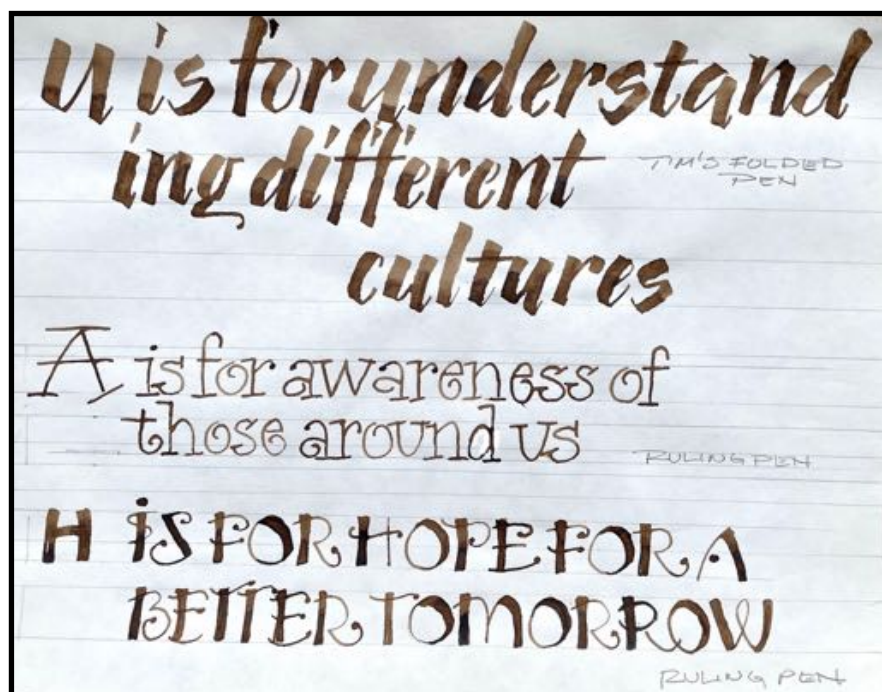 u is for understand
ing different
TIM'S FOLDED
PEN
cultures
A is for awareness of
those around us
RULING PEN
H iS FOR HOPE FOR A
BETTER TOMORROW
RULING PEN